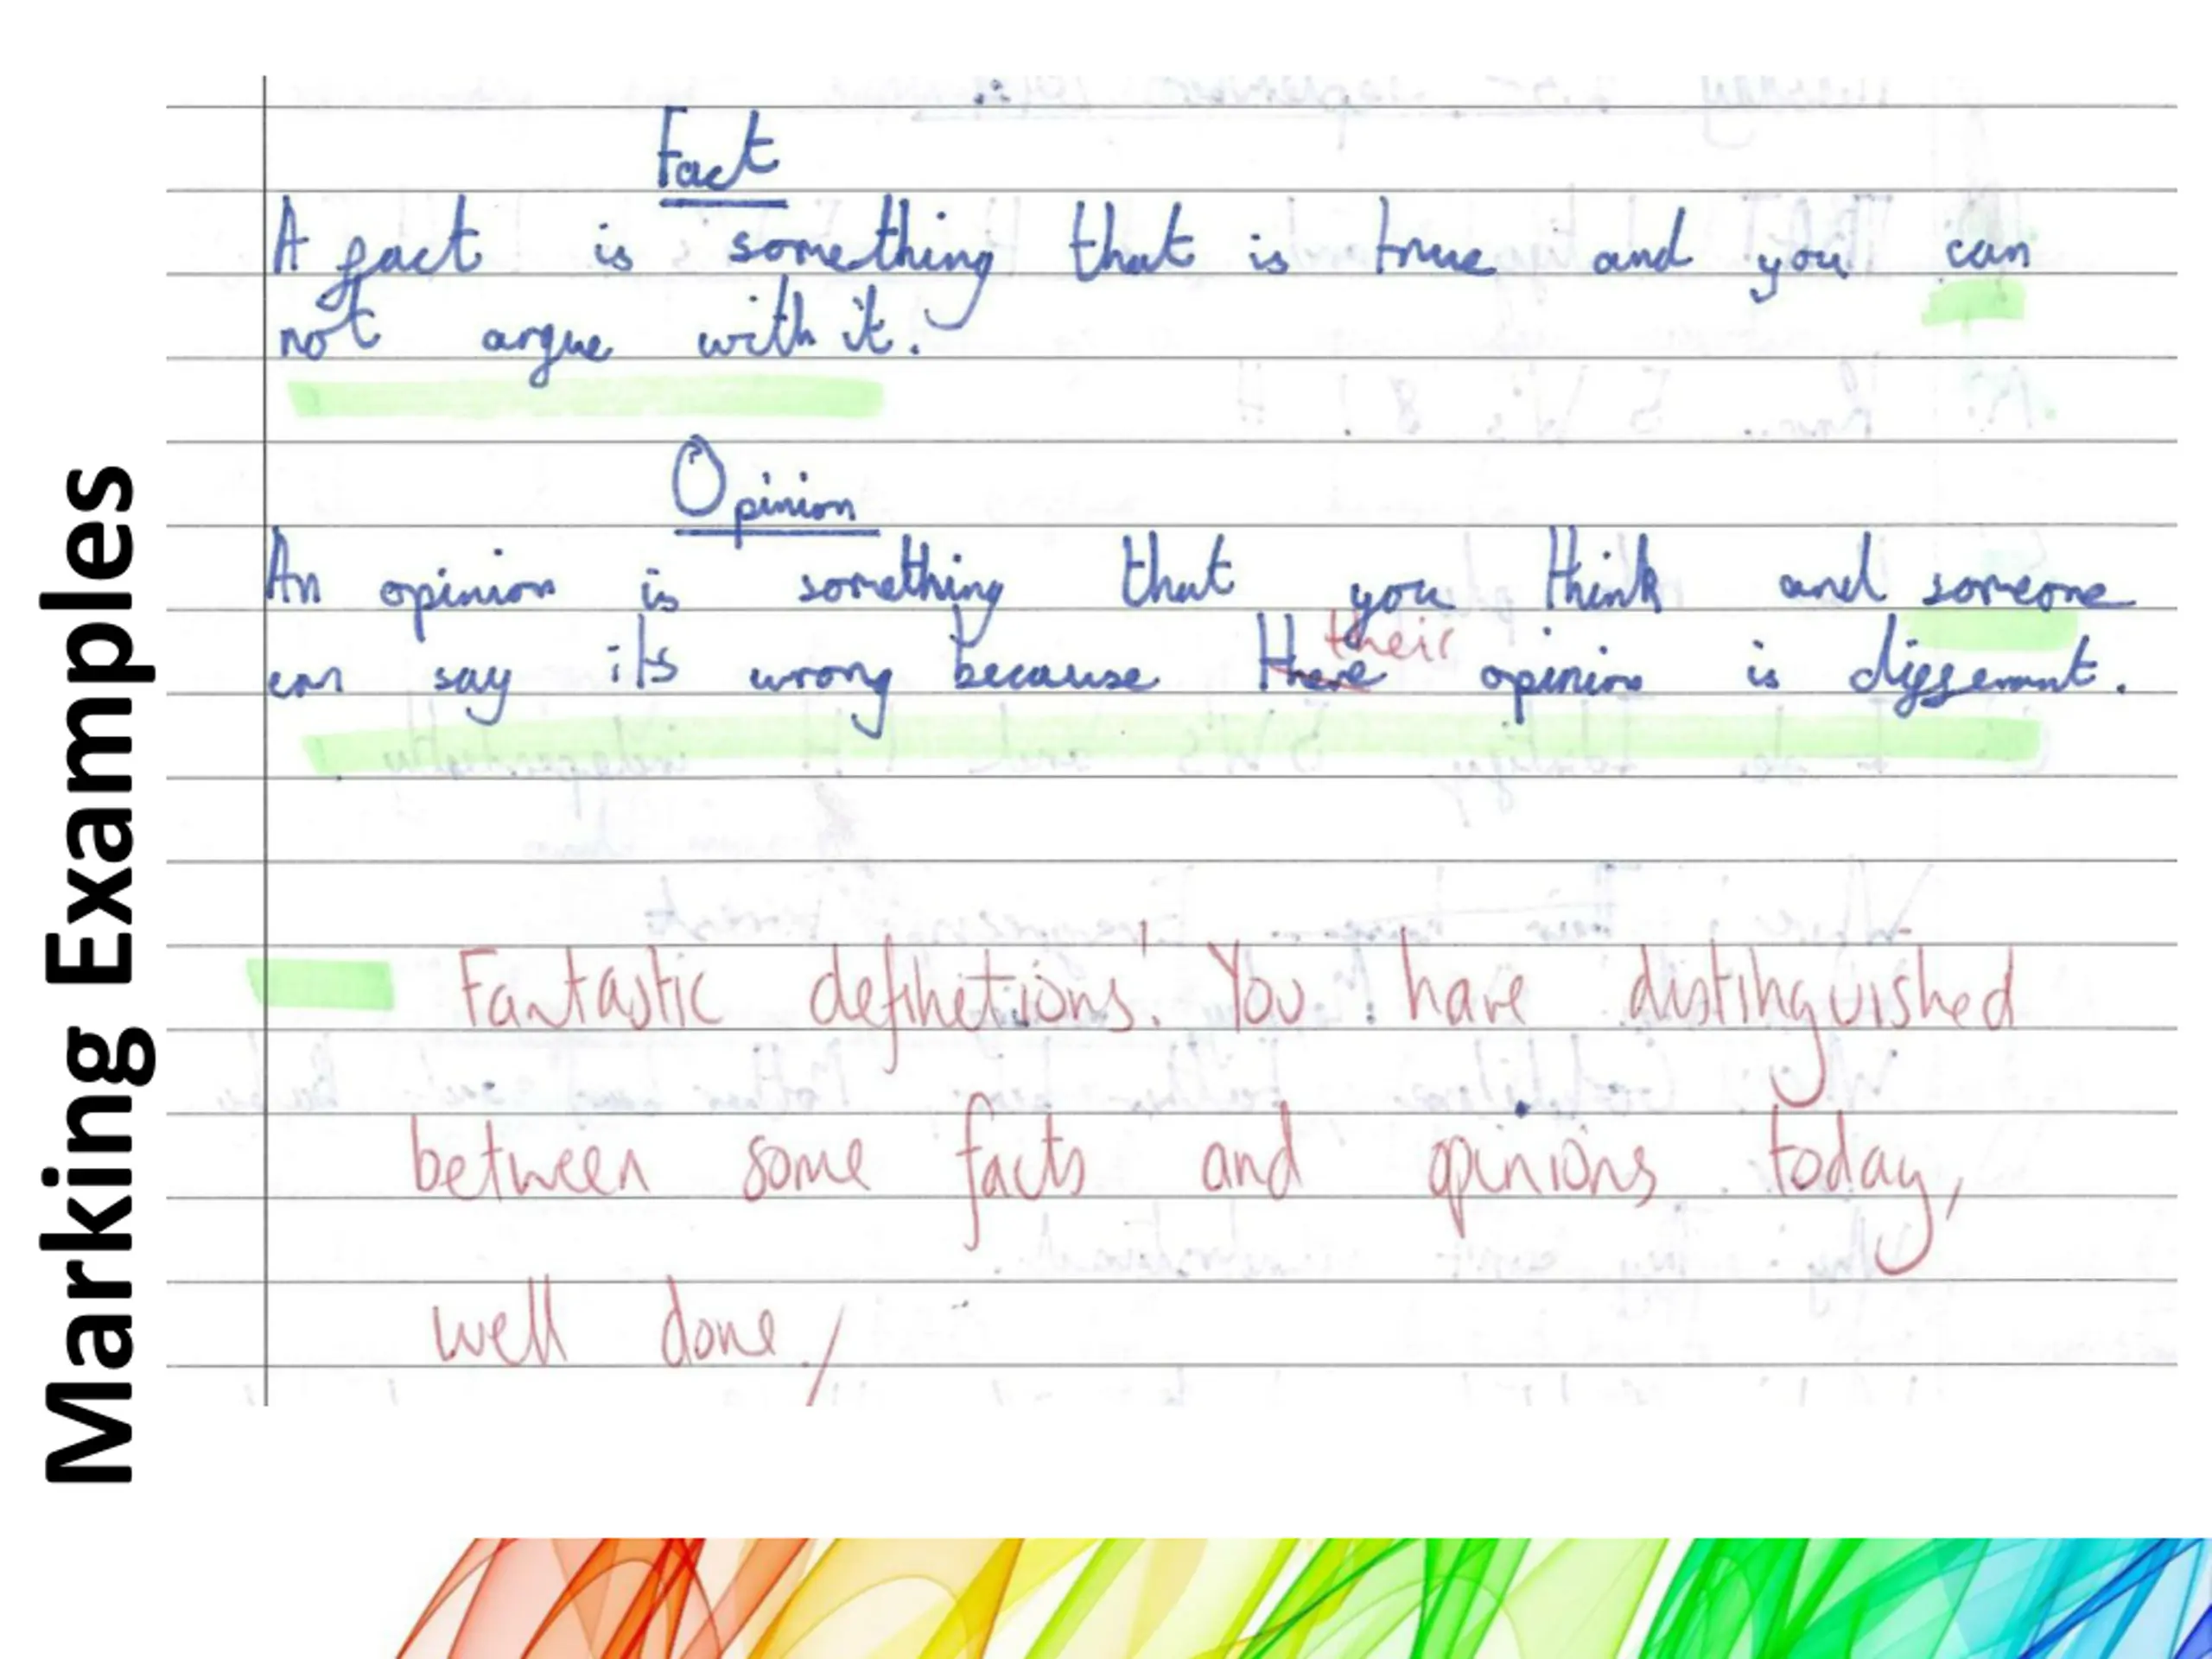 Marking Examples
Fact
A fact is something that is true and you can
not argue with it.
Opinion
An opinion is something that you think and someone
can say it's wrong because there opinion is differant.
their
Fantastic definetions! You have distinguished
between some facts and opinions today,
well done